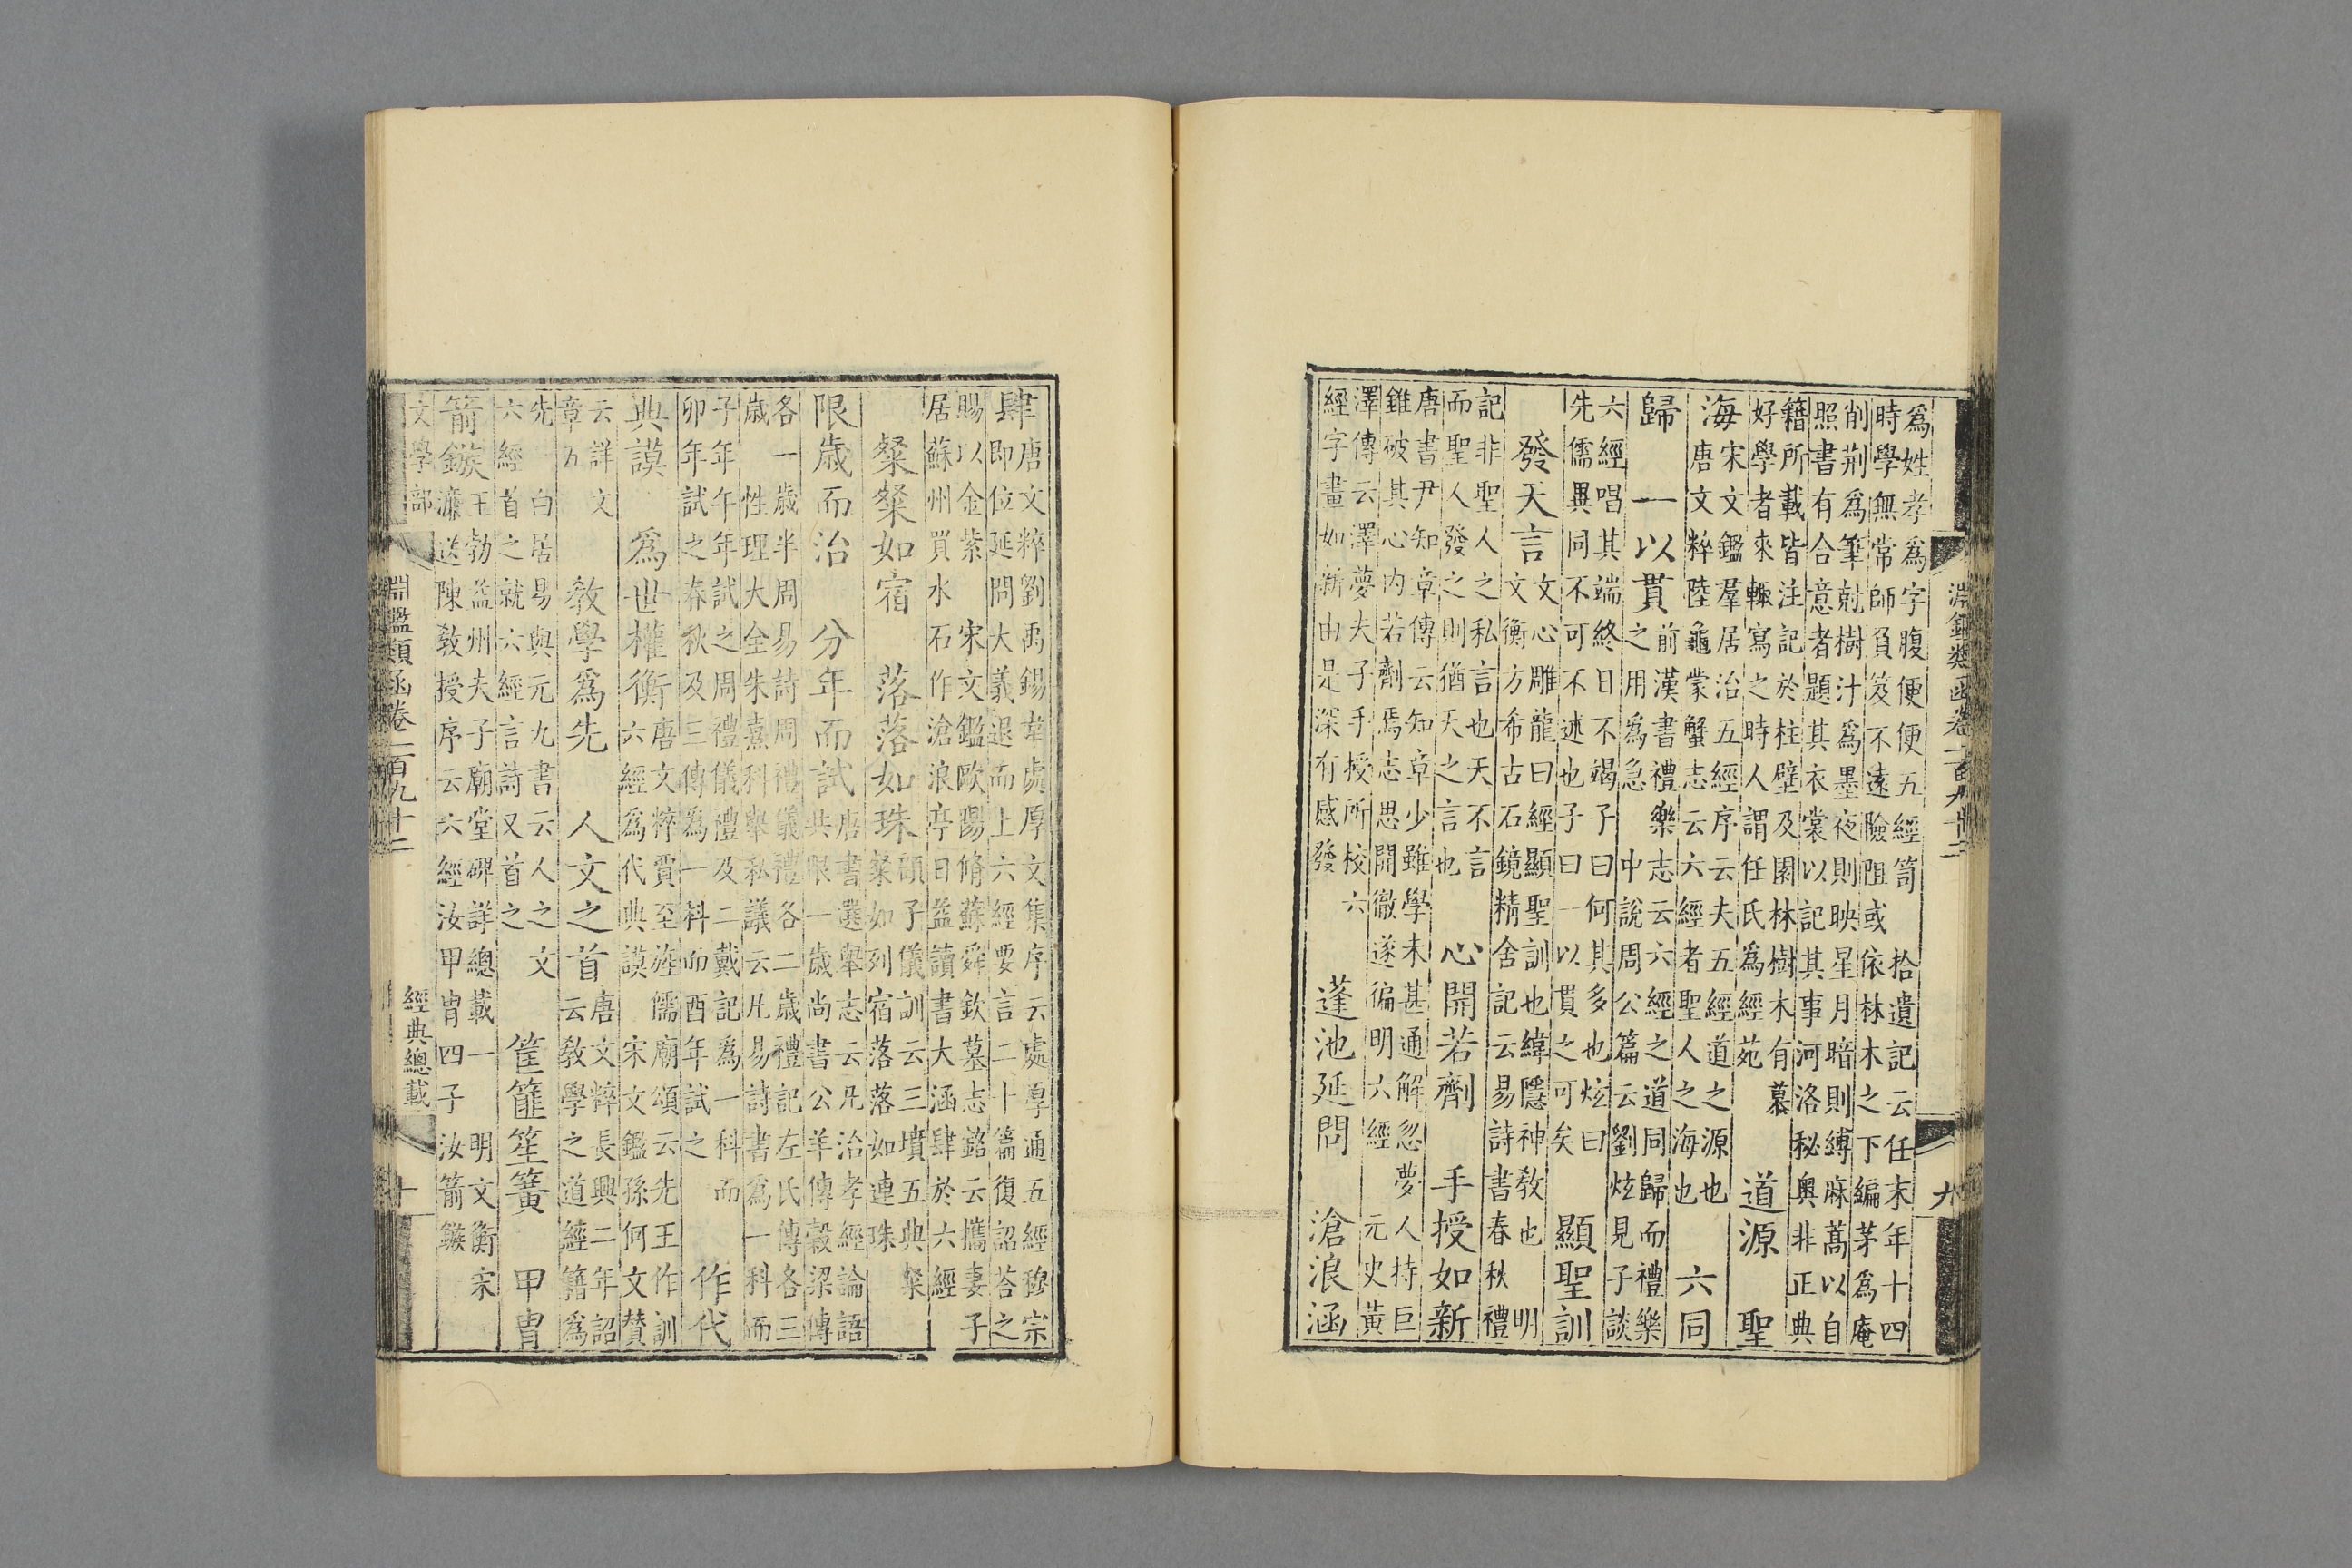 淵鑑類函卷一百九十二 九
為姓孝為字腹便便五經笥 拾遺記云任末年十四
時學無常師負笈不遠險阻或依林木之下編茅為庵
削荆為筆尅樹汁為墨夜則映星月暗則縛麻蒿以自
照書有合意者題其衣裳以記其事河洛秘奥非正典
籍所載皆注記於柱壁及園林樹木有慕
好學者來輙寫之時人謂任氏為經苑 道源 聖
海 宋文鑑羣居治五經序云夫五經道之源也
唐文粹陸龜蒙蟹志云六經者聖人之海也 六同
歸 一以貫 前漢書禮樂志云六經之道同歸而禮樂
之用為急 中說周公篇云劉炫見子談
六經唱其端終日不竭子曰何其多也炫曰
先儒異同不可不述也子曰一以貫之可矣 顯聖訓
發天言 文心雕龍曰經顯聖訓也緯隱神敎也 明
文衡方希古石鏡精舍記云易詩書春秋禮
記非聖人之私言也天不言
而聖人發之則猶天之言也 心開若劑 手授如新
唐書尹知章傳云知章少雖學未甚通解忽夢人持巨
錐破其心内若劑焉志思開徹遂徧明六經 元史黃
澤傳云澤夢夫子手授所校六
經字畫如新由是深有感發 蓬池延問 滄浪涵
肆 唐文粹劉禹錫韋處厚文集序云處厚通五經穆宗
即位延問大義退而上六經要言二十篇復詔荅之
賜以金紫 宋文鑑歐陽脩蘇舜欽墓志銘云攜妻子
居蘇州買水石作滄浪亭日益讀書大涵肆於六經
粲粲如宿 落落如珠 碩子儀訓云三墳五典粲
粲如列宿落落如連珠
限歲而治 分年而試 唐書選舉志云凡治孝經論語
共限一歲尚書公羊傳穀梁傳
各一歲半周易詩周禮儀禮各二歲禮記左氏傳各三
歲 性理大全朱熹科舉私議云凡易詩書為一科而
子年午年試之周禮儀禮及二戴記為一科而
卯年試之春秋及三傳為一科而酉年試之 作代
典謨 為世權衡 唐文粹賈至旌儒廟頌云先王作訓
六經為代典謨 宋文鑑孫何文贊
云詳文
章五 敎學為先 人文之首 唐文粹長興二年詔
云敎學之道經籍為
先 白居易與元九書云人之文
六經首之就六經言詩又首之 筐篚笙簧 甲胄
箭鏃 王勃益州夫子廟堂碑詳總載一 明文衡宋
濂送陳敎授序云六經汝甲胄四子 汝箭鏃
文學部 淵鑑類函卷一百九十二 經典總載 十